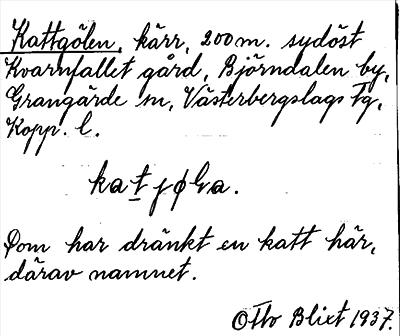 Kattgölen, kärr, 200 m. sydöst
Kvarnfallet gård, Björndalen by,
Grangärde sn, Västerbergslags tg,
Kopp. l.
Dom har dränkt en katt här,
därav namnet.
Otto Blixt 1937.